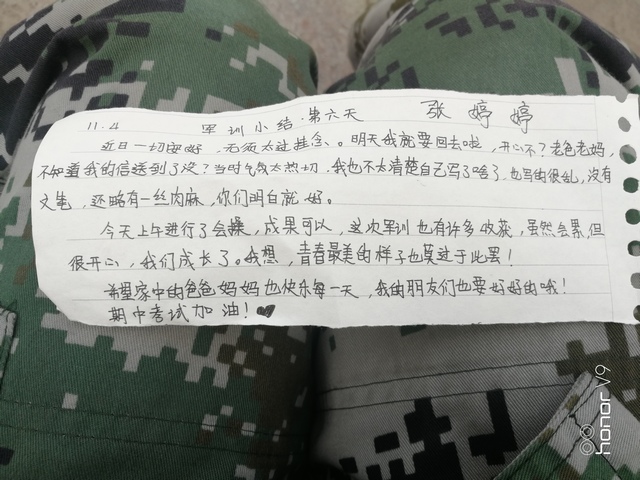 11.4 军训小结·第六天 张婷婷
近日一切安好，无须太过挂念。明天我就要回去啦，开心不？老爸老妈，
不知道我的信送到了没？当时气氛太热切，我也不太清楚自己写了啥了，也写的很乱，没有
文笔，还略有一丝肉麻，你们明白就好。
今天上午进行了会操，成果可以，这次军训也有许多收获，虽然会累，但
很开心，我们成长了。我想，青春最美的样子也莫过于此罢！
希望家中的爸爸妈妈也快乐每一天，我的朋友们也要好好的哦！
期中考试加油！
honor V9